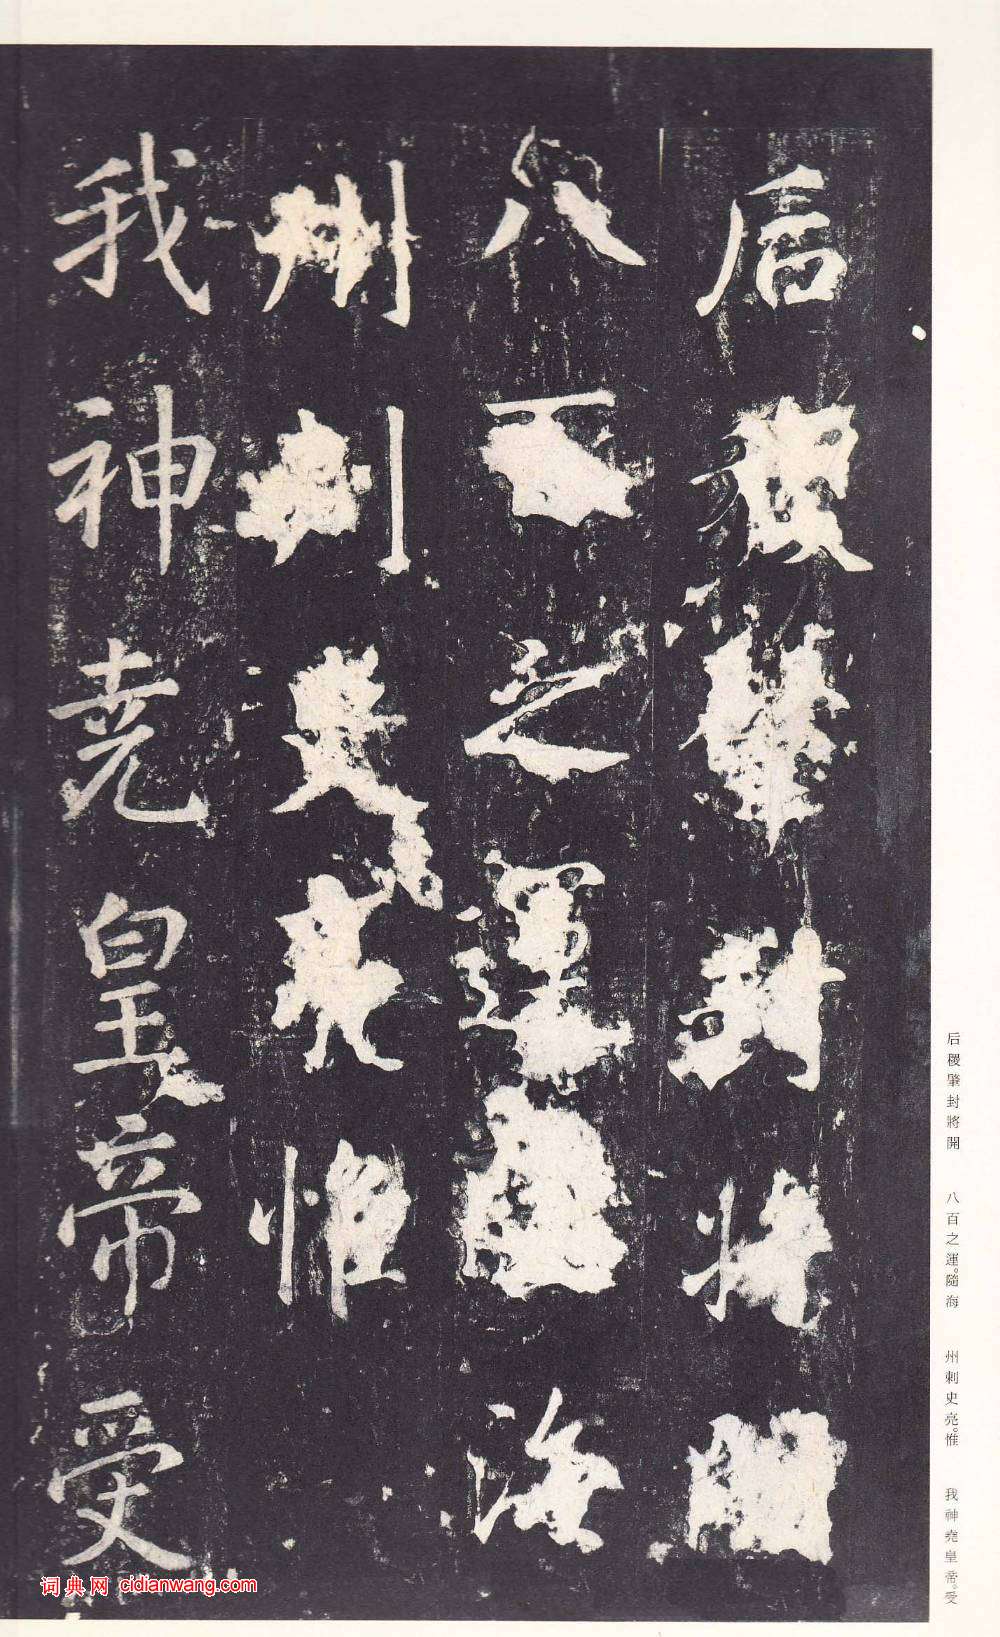 后稷肇封將開
八百之運隨海
州刺史亮惟
我神堯皇帝受
后稷肇封將開　八百之運。隨海　州刺史亮。惟　我神堯皇帝。受
词典网 cidianwang.com